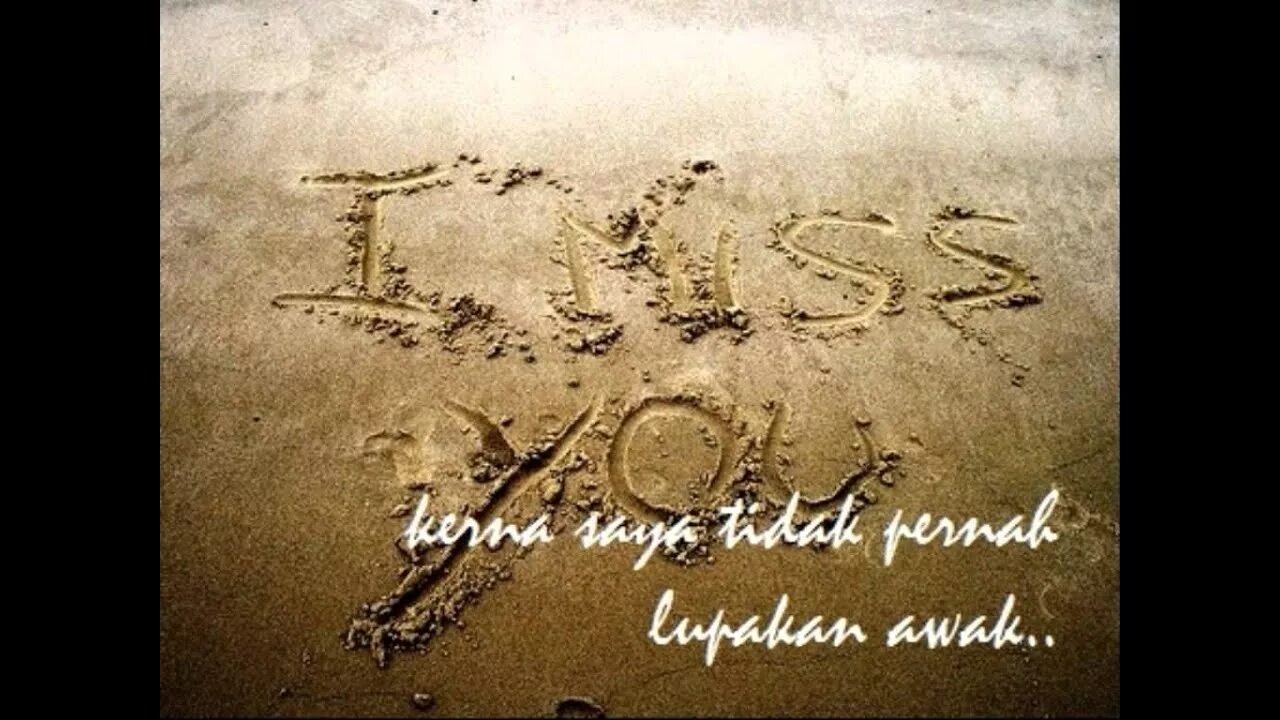 I MISS
YOU
kerna saya tidak pernah
lupakan awak..